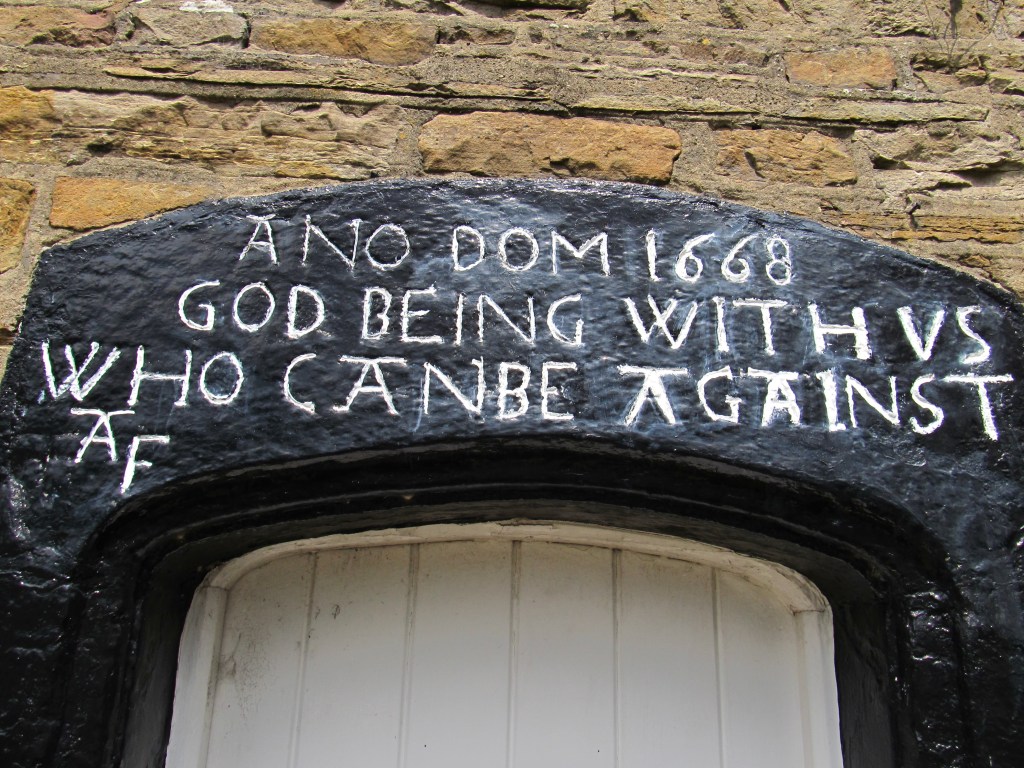 ANO DOM 1668
GOD BEING WITH VS
WHO CANBE AGAINST
AF